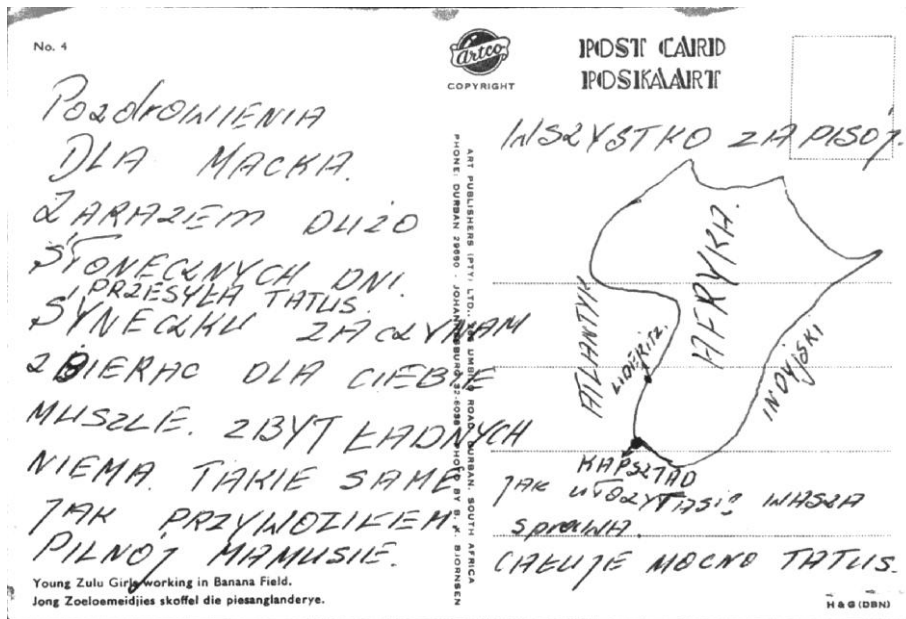 No. 4
Artco
COPYRIGHT
POST CARD
POSKAART
POZdROWIENIA
DLA MACKA.
ZARAZEM DUŻO
SŁONECZNYCH DNI.
I PRZESYŁA TATUS.
SYNECZKU ZACZYNAM
ZBIERAC DLA CIEBIE
MUSZLE. ZBYT ŁADNYCH
NIEMA. TAKIE SAME
JAK PRZYWOZIŁEM.
PILNÓJ MAMUSIE.
Young Zulu Girls working in Banana Field.
Jong Zoeloemeidjies skoffel die piesanglanderye.
ART PUBLISHERS (PTY) LTD., UMBILO ROAD, DURBAN, SOUTH AFRICA
PHONE: DURBAN 29680 - JOHANNESBURG PHOTO BY B. K. BJORNSEN
WSZYSTKO ZAPISÓJ.
AFRYKA.
ATLANTYK
LUDERITZ.
INDYJSKI
KAPSZTAD
JAK WASZA
SPRAWA
CAŁUJE MOCNO TATUS.
H & G (DBN)